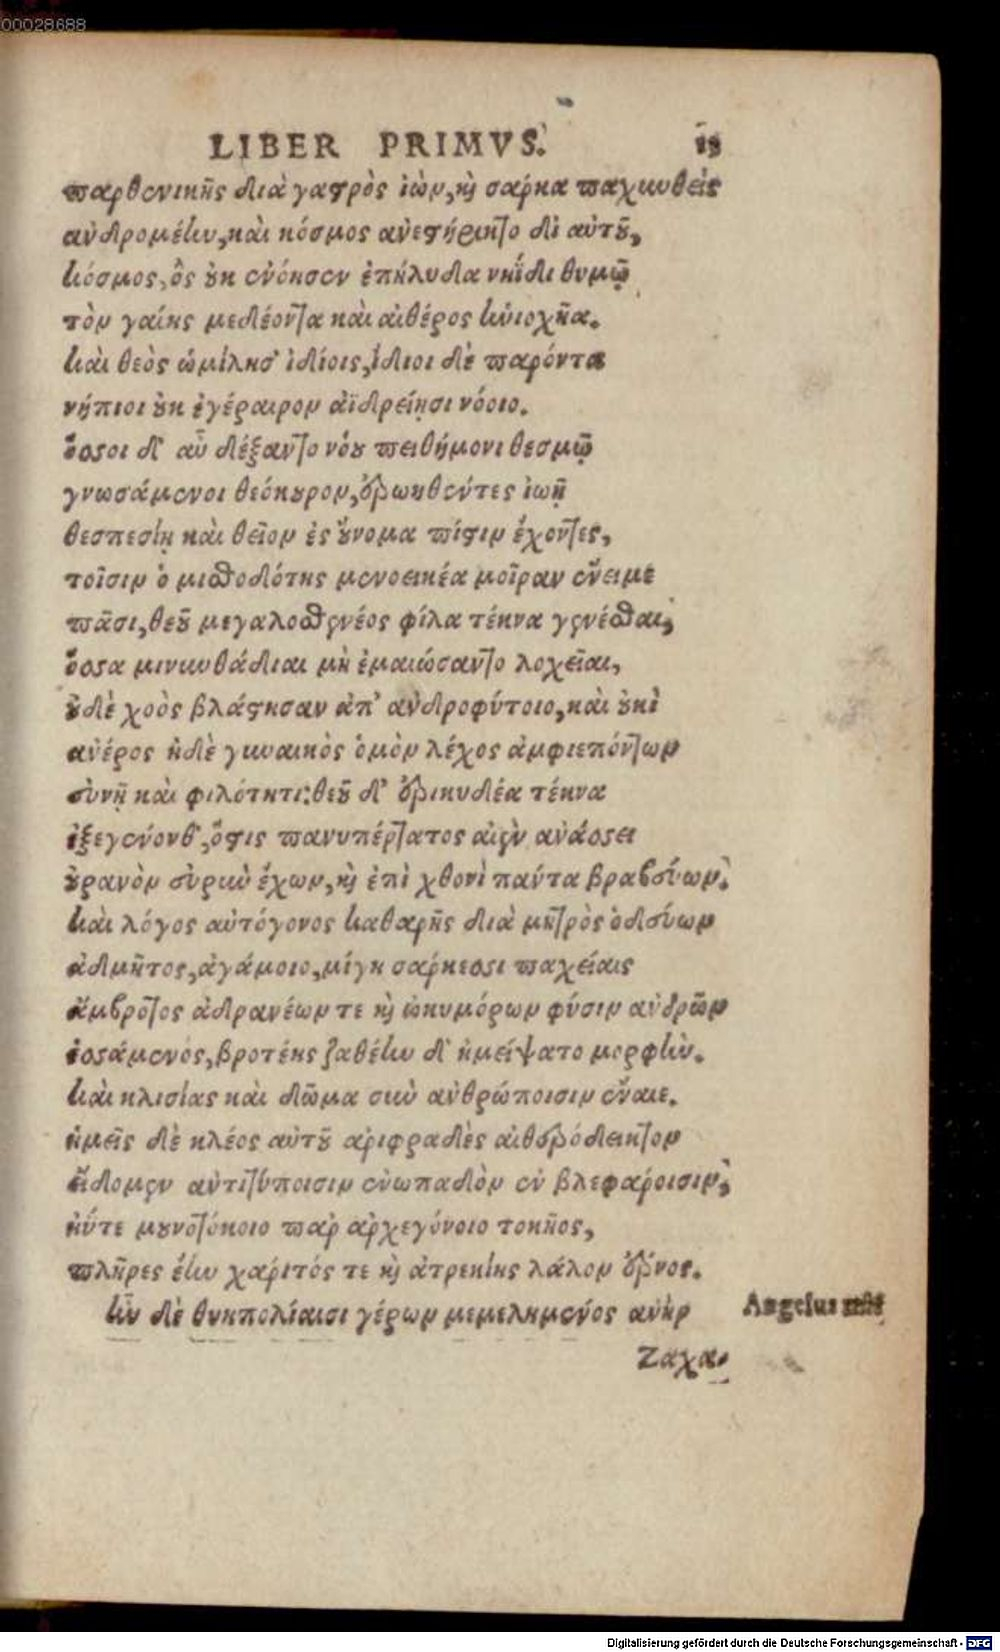 00028688
LIBER PRIMVS.
παρθενικῆς διὰ γαστρὸς ἰὼν, καὶ σάρκα παχυνθεὶς
ἀνδρομέην, καὶ κόσμος ἀνεστήρικτο δι αὐτοῦ,
κόσμος, ὃς οὐκ ἐνόησεν ἐπήλυδα νηΐδι θυμῷ
τὸν γαίης μεδέοντα καὶ αἰθέρος ἡνιοχῆα.
καὶ θεὸς ὡμίλησ' ἰδίοις, ἴδιοι δὲ παρόντα
νήπιοι οὐκ ἐγέραιρον ἀϊδρείῃσι νόοιο.
ὅσσοι δ' αὖ δέξαντο νόου πειθήμονι θεσμῷ
γνωσάμενοι θεόκουρον, ὀρωηθέντες ἰωῇ
θεσπεσίῃ καὶ θεῖον ἐς οὔνομα πίστιν ἔχοντες,
τοῖσιν ὁ μισθοδότης μενοεικέα μοῖραν ἔνειμε
πᾶσι, θεοῦ μεγαλοσθενέος φίλα τέκνα γενέσθαι,
ὅσσα μινυνθάδιαι μὴ ἐμαιώσαντο λοχεῖαι,
οὐδὲ χοὸς βλάστησαν ἀπ' ἀνδροφύτοιο, καὶ οὐκὶ
ἀνέρος ἠδὲ γυναικὸς ὁμὸν λέχος ἀμφιεπόντων
εὐνῇ καὶ φιλότητι: θεοῦ δ' ἐρικυδέα τέκνα
ἐξεγένονθ', ὅστις πανυπέρτατος αἰὲν ἀνάσσει
οὐρανὸν εὐρὺν ἔχων, καὶ ἐπὶ χθονὶ πάντα βραβεύων.
καὶ λόγος αὐτόγονος καθαρῆς διὰ μητρὸς ὁδεύων
ἀδμῆτος, ἀγάμοιο, μίγη σάρκεσσι παχείαις
ἄμβροτος ἀδρανέων τε καὶ ὠκυμόρων φύσιν ἀνδρῶν
ἑσσάμενος, βροτέης ζαθέην δ' ἠμείψατο μορφὴν.
καὶ κλισίας καὶ δῶμα σὺν ἀνθρώποισιν ἔναιε.
ἡμεῖς δὲ κλέος αὐτοῦ ἀριφραδὲς αἰθερόδεικτον
εἴδομεν ἀντιτύποισιν ἐνωπαδὸν ἐν βλεφάροισιν,
ἠΰτε μουνοτόκοιο παρ ἀρχεγόνοιο τοκῆος,
πλῆρες ἐὴν χάριτός τε καὶ ἀτρεκίης λάλον ἔρνος.
ἦν δὲ θυηπολίαισι γέρων μεμελημένος ἀνὴρ
Angelus
Ζαχα-
Digitalisierung gefördert durch die Deutsche Forschungsgemeinschaft - DFG